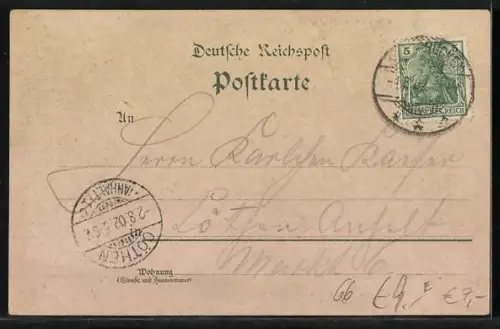 Deutsche Reichspost
Postkarte
5
DEUTSCHES REICH
An
Herrn
Cöthen Anhalt
Markt 6
CÖTHEN
(ANHALT)
2.8.02.5-6N.
Wohnung
(Straße und Hausnummer)
66 €9,- €9,-